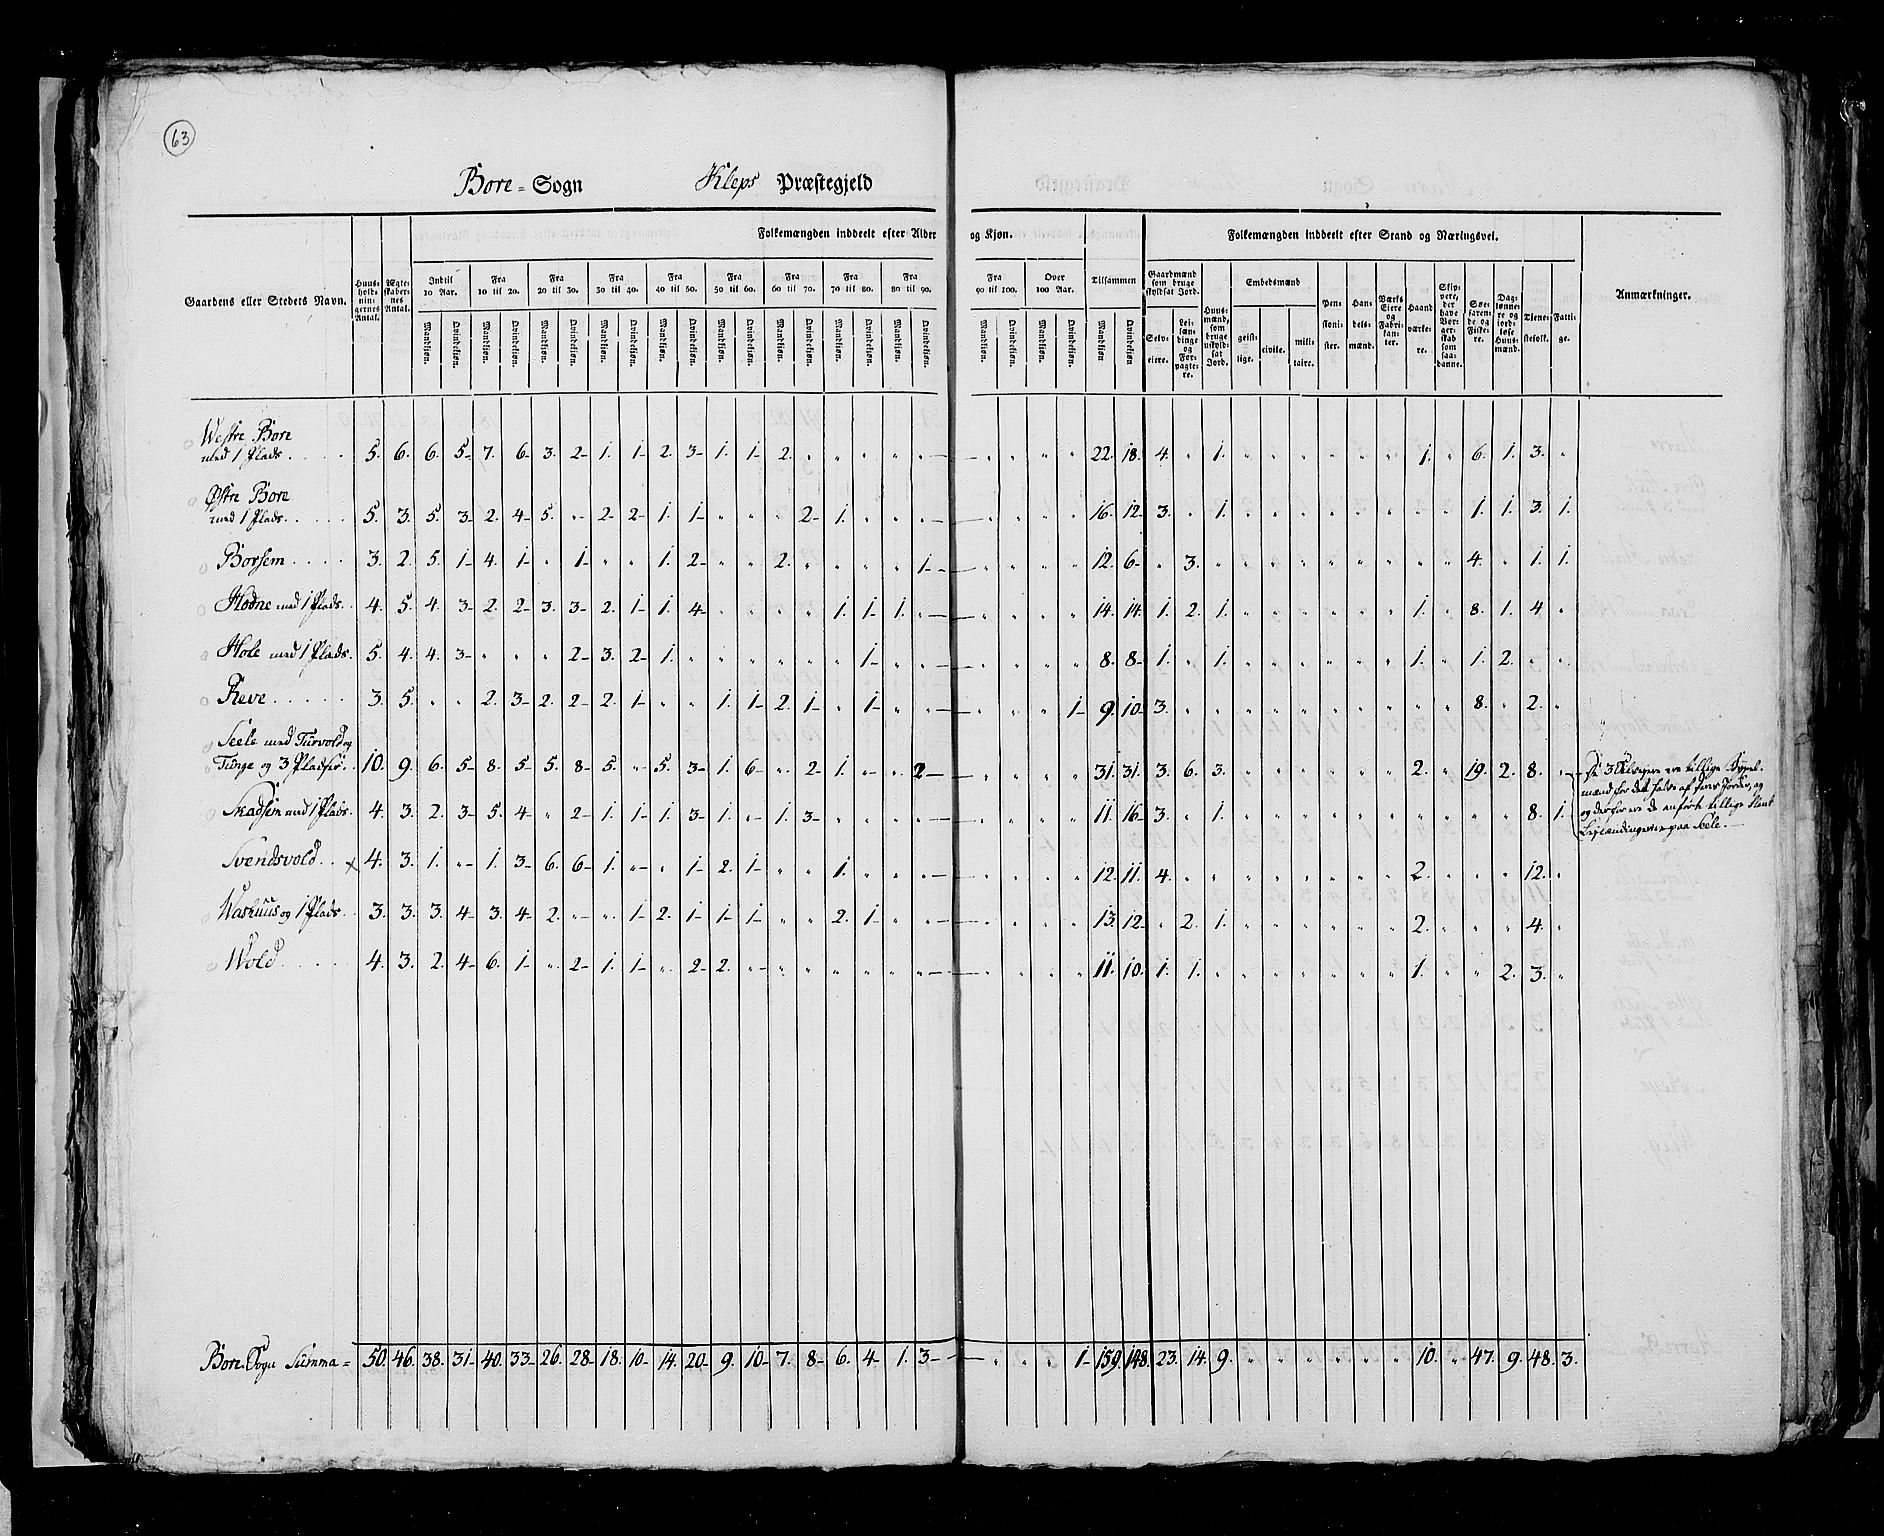 63
Bore = Sogn Kleps Præstegjeld
Gaardens eller Stedets Navn. Huus-hold-nin-gernes Antal. Ægte-skaber-nes Antal. Folkemængden inddeelt efter Alder og Kjøn. Folkemængden inddeelt efter Stand og Næringsvei. Anmærkninger.
Indtil 10 Aar. Fra 10 til 20. Fra 20 til 30. Fra 30 til 40. Fra 40 til 50. Fra 50 til 60. Fra 60 til 70. Fra 70 til 80. Fra 80 til 90. Fra 90 til 100. Over 100 Aar. Tilsammen Gaardmænd som bruge skyldsat Jord. Huus-mænd, som bruge uskyld-sat Jord. Embedsmænd Pen-sioni-ster. Han-dels-mænd. Værks Eiere og Fabri-kan-ter. Haand værke-re. Skip-pere, der have Bor-ger-skab som saa-danne. Søe-farem-de og Fiske-re. Dag-lønne-re og jord-løse Huus-mænd. Tiene-stefolk. Fatti-ge.
Mandkiøn. Qvindekiøn. Mandkiøn. Qvindekiøn. Mandkiøn. Qvindekiøn. Mandkiøn. Qvindekiøn. Mandkiøn. Qvindekiøn. Mandkiøn. Qvindekiøn. Mandkiøn. Qvindekiøn. Mandkiøn. Qvindekiøn. Mandkiøn. Qvindekiøn. Mandkiøn. Qvindekiøn. Mandkiøn. Qvindekiøn. Mandkiøn Qvindekiøn Selv-eiere. Lei-læn-dinge og For-pagte-re. geist-lige. civile. mili-taire.
Westre Bore
med 1 Plads. . . . 5. 6. 6. 5- 7. 6. 3. 2- 1. 1- 2. 3- 1. 1- 2. " " " " " " " " " 22. 18. 4. " 1. " " " " " " 1. " 6. 1. 3. "
Østre Bore
med 1 Plads. . . . 5. 3. 5. 3- 2. 4- 5. " 2- 2- 1. 1- " " " 2- 1. " " " " " " " 16. 12- 3. " 1. " " " " " " " " 1. 1. 3. 1.
Borsem . . . . 3. 2. 5. 1- 4. 1- " 1- " " 1. 2- " " 2. " " " " 1- " " " " 12. 6- " 3. " " " " " " " " " 4. " 1. 1.
Hodne med 1 Plads. . 4. 5. 4. 3- 2. 2- 3. 3- 2. 1- 1. 4- " " " " 1. 1- 1. " " " " " 14. 14. 1. 2. 1. " " " " " " 1. " 8. 1. 4. "
Hole med 1 Plads. 5. 4. 4. 3- " " " 2- 3. 2- 1. " " " " " " 1- " " " " " " 8. 8- 1. " 1. " " " " " " 1. " 1. 2. " "
Reve . . . . . 3. 5. " " 2. 3- 2. 2- 2. 1- " " 1. 1- 2. 1- " 1- " " " " " 1- 9. 10- 3. " " " " " " " " " " 8. " 2. "
Seele med Turvold og
Tunge og 3 Pladser. . 10. 9. 6. 5- 8. 5- 5. 8- 5. " 5. 3- 1. 6- " 2- 1. " " 2- " " " " 31. 31. 3. 6. 3. " " " " " " 2. " 19. 2. 8. "
De 3 Selveiere ere tillige Byxel-
mænd for det halve af deres Jorder, og
og derfor ere de anførte tillige blant
Leilændingerne paa Seele.
Skadsem med 1 Plads. 4. 3. 2. 3- 5. 4- " 2- 1. 1- 1. 3- 1. " 1. 3- " " " " " " " " 11. 16- 3. " 1. " " " " " " " " " " 8. 1.
Svendsvold. . x 4. 3. 1. " 1. 3- 6. 6- 1. " " 1- 2. 1- " " 1. " " " " " " " 12. 11. 4. " " " " " " " " 2. " " " 12. "
Washuus og 1 Plads. . 3. 3. 3. 4- 3. 4- 2. " " 1- 2. 1- 1- 1- " " 2. 1- " " " " " " 13. 12- " 2. 1. " " " " " " 2. " " " 4. "
Wold . . . . 4. 3. 2. 4- 6. 1- " 2- 1. 1- " 2- 2. " " " " " " " " " " " 11. 10. 1. 1. " " " " " " " 1. " " 2. 3. "
Bore Sogn Summa = 50. 46. 38. 31- 40. 33- 26. 28- 18. 10- 14. 20- 9. 10- 7. 8- 6. 4- 1. 3- " " " 1- 159. 148. 23. 14. 9. " " " " " " 10. " 47. 9. 48. 3.